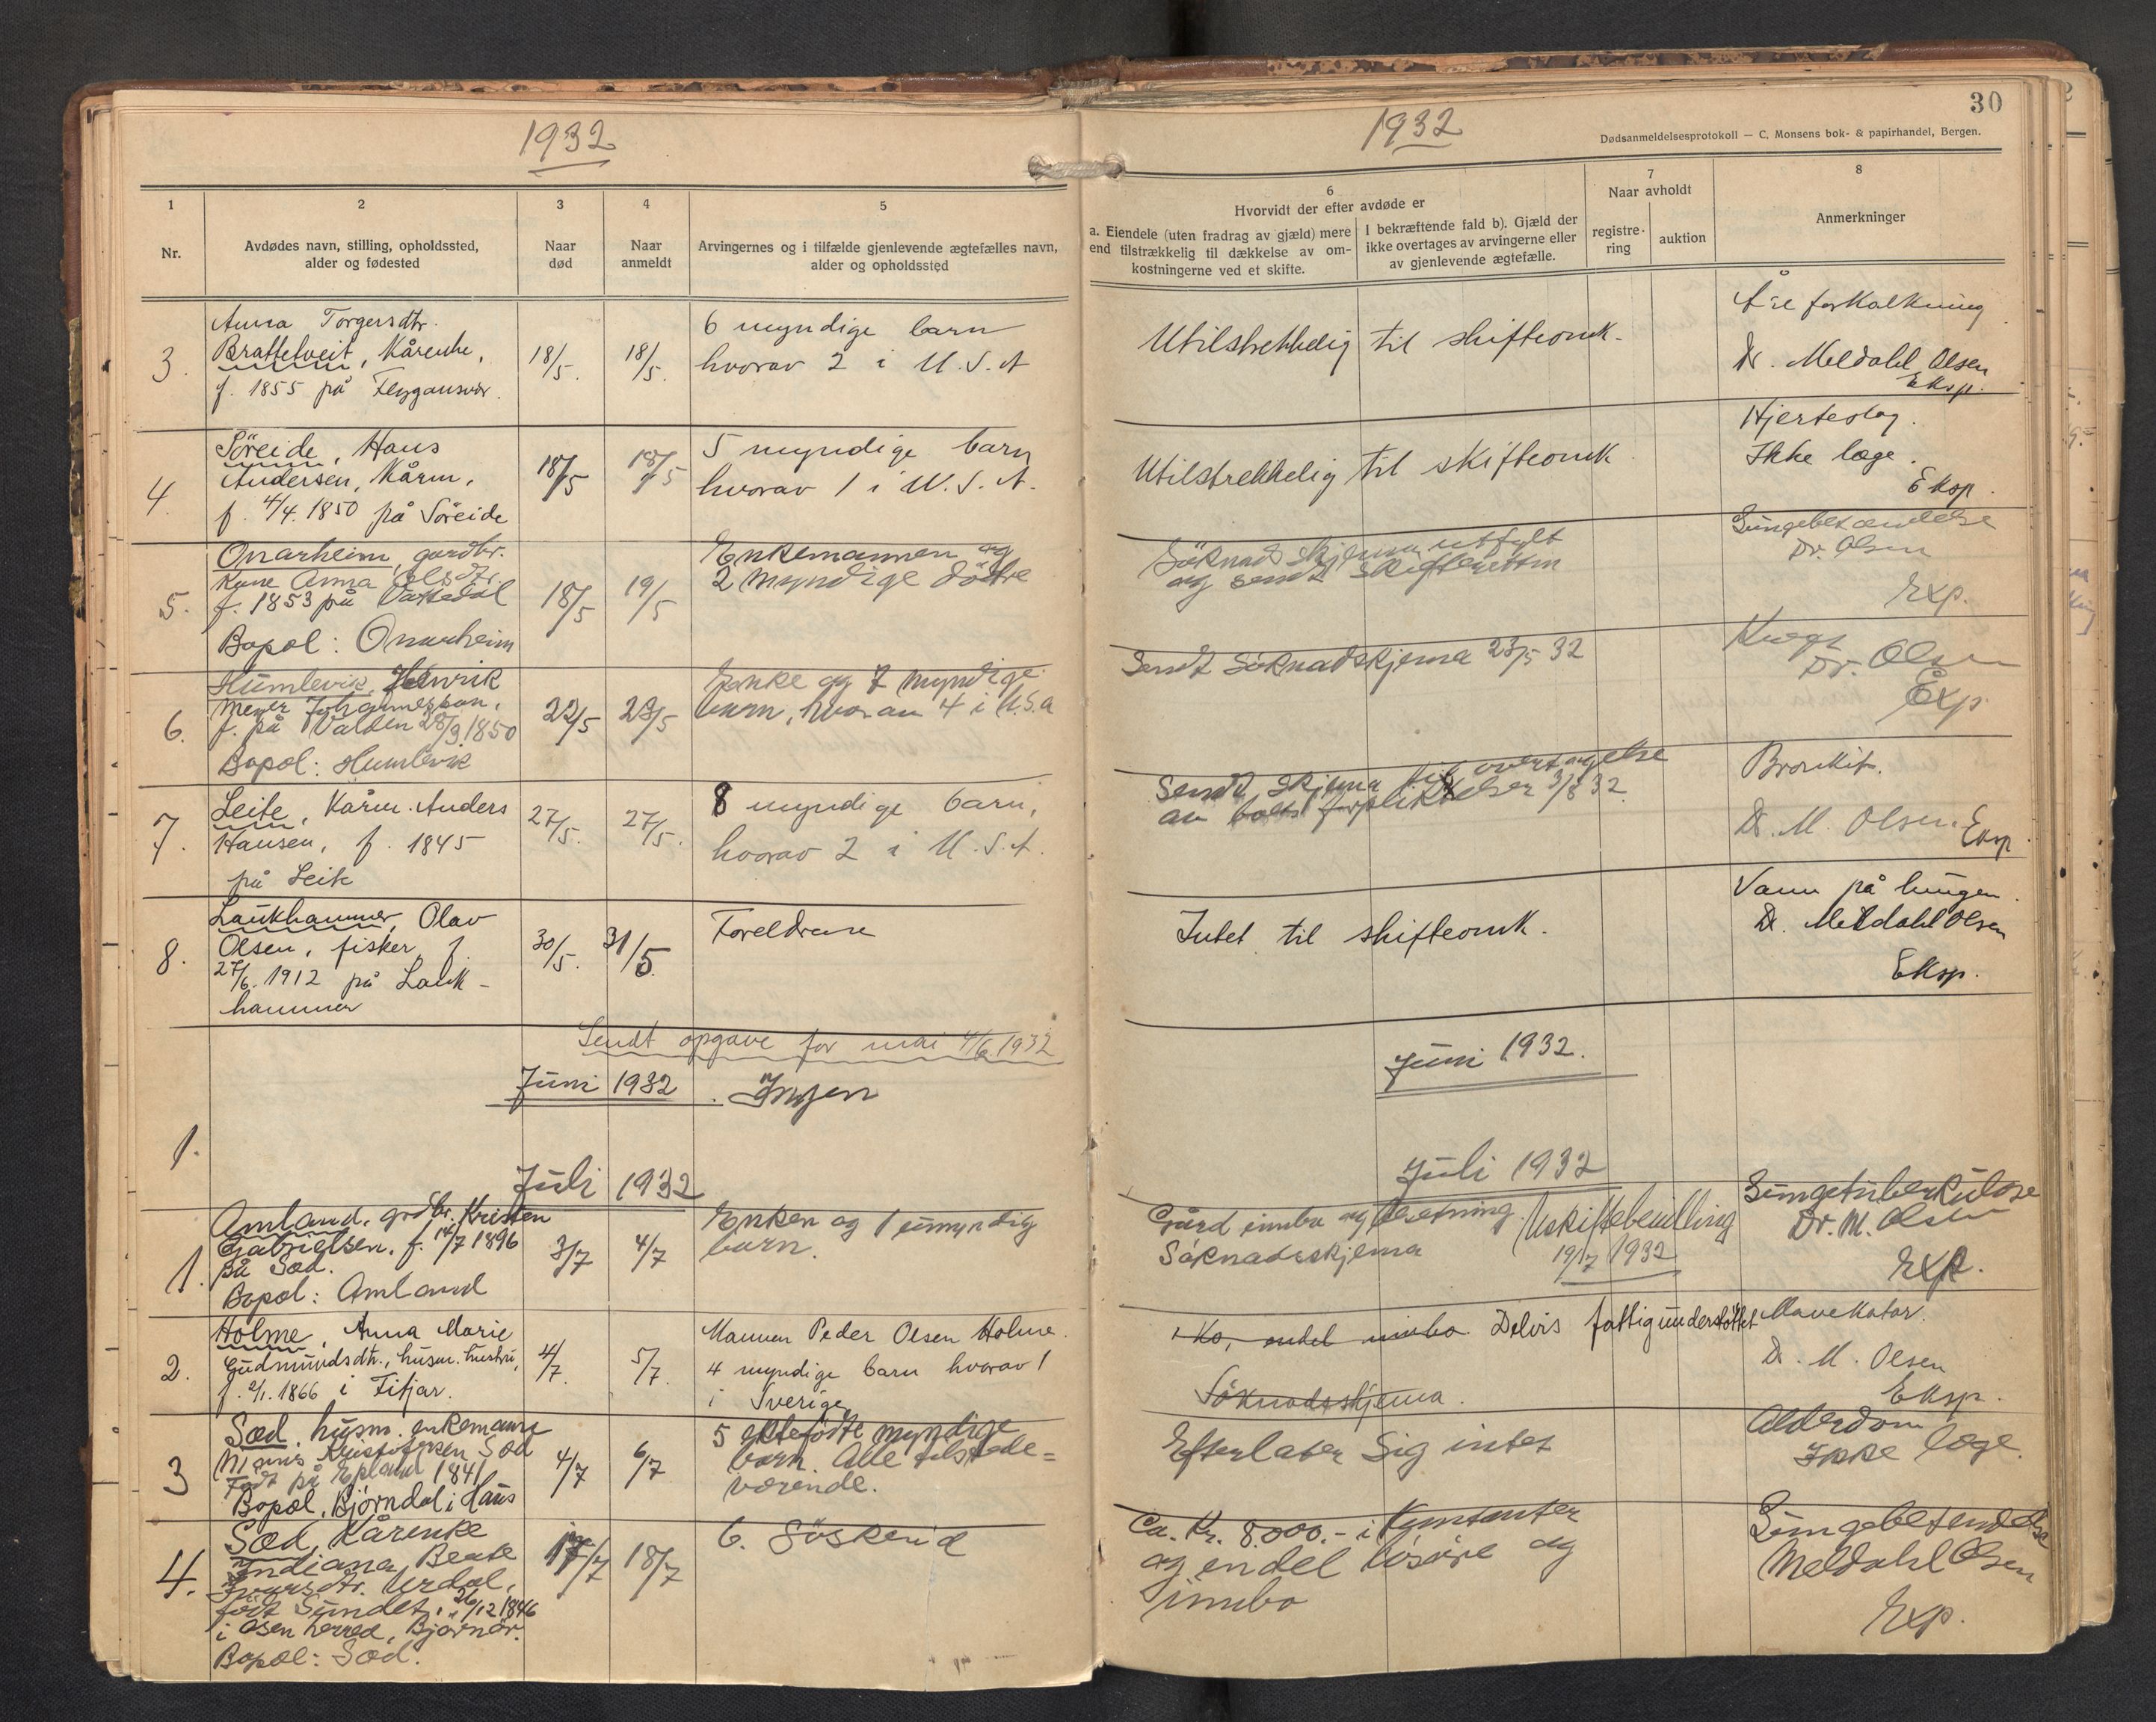 1932
1
2
3
4
5
Nr.
Avdødes navn, stilling, opholdssted,
alder og fødested
Naar
død
Naar
anmeldt
Arvingernes og i tilfælde gjenlevende ægtefælles navn,
alder og opholdssted
3.
Anna Torgersdtr.
Brattetveit, Kårenke,
f. 1855 på Flygansvær.
18/5.
18/5.
6 myndige barn
hvorav 2 i U.S.A
4.
Söreide, Hans
Andersen, Kårm.
f. 4/4. 1850 på Söreide
18/5
18/5
5 myndige barn
hvorav 1 i U.S.A.
5.
Onarheim, gardbr.
Kone Anna Olsdtr.
f. 1853 på Vattedal
Bopel: Onarheim
18/5
19/5
Enkemannen og
2 myndige döttre
6.
Humlevik, Henrik
Meyer Johannesson,
f. på Valden 28/9 1850
Bopel: Humlevik
22/5
23/5
Enke og 7 myndige
barn, hvorav 4 i U.S.A
7.
Leite, Kårm. Anders
Hansen, f. 1845
på Leite
27/5.
27/5.
8 myndige barn,
hvorav 2 i U.S.A.
8.
Laukhammer, Olav
Olsen, fisker, f.
27/6. 1912 på Lauk-
hammer
30/5.
31/5.
Foreldrene
Sendt opgave for mai 4/6. 1932
Juni 1932. Ingen
1.
Juli 1932
1.
Amland, grdbr. Kristen
Gabrielsen, f. 14/7 1896
på Sæd.
Bopel: Amland
3/7
4/7
Enken og 1 umyndig
barn.
2.
Holme, Anna Marie
Gudmundsdtr., husm. hustru,
f. 2/1. 1866 i Fitjar.
4/7.
5/7.
Mannen Peder Olsen Holme.
4 myndige barn hvorav 1
i Sverige.
3
Sæd, husm. enkemann
Kristofersen Sæd
Födt på Epland 1841
Bopel. Björndal i Haus
4/7
6/7
5 ektefödte myndige
barn. Alle tilstede=
værende.
4.
Sæd, Kårenke
Indiana Beate
Iversdtr. Urdal,
födt Sundet, 26/12 1846
i Osen herred, Björnör.
Bopel: Sæd.
17/7
18/7
6. Söskend
1932
30
Dødsanmeldelsesprotokoll — C. Monsens bok- & papirhandel, Bergen.
6
Hvorvidt der efter avdøde er
a. Eiendele (uten fradrag av gjæld) mere
end tilstrækkelig til dækkelse av om-
kostningerne ved et skifte.
I bekræftende fald b). Gjæld der
ikke overtages av arvingerne eller
av gjenlevende ægtefælle.
7
Naar avholdt
registre-
ring
auktion
8
Anmerkninger
Utilstrekkelig til skifteomk.
Åreforkalkning
Dr. Meldahl Olsen
Eksp.
Utilstrekkelig til skifteomk
Hjerteslag.
Ikke læge.
Eksp.
Söknadskjema utfylt
og sendt skifteretten
Lungebetændelse
Dr. Olsen
Exp.
Sendt Söknadskjema 23/5 32
Dr. Olsen
Exp
Sendt skjema til overtagelse
av boets forpliktelser 3/8 32.
Bronkit.
Dr. M. Olsen. Eksp
Intet til skifteomk.
Vann på lungen.
Dr. Meldahl Olsen
Eksp.
Juni 1932.
Juli 1932
Gård innbo og besetning. Uskiftebevilling
Söknadsskjema 19/7 1932
Lungetuberkulose
Dr. M. Olsen
Exp.
1 Ko, endel innbo. Delvis fattigunderstöttet
Söknadsskjema.
Mavekatar.
Dr. M. Olsen
Eksp.
Efterlater Sig intet
Alderdom
Ikke læge.
Ca. Kr. 8.000.- i Kontanter
og endel lösöre og
innbo
Lungebetendelse
Meldahl Olsen
Exp.